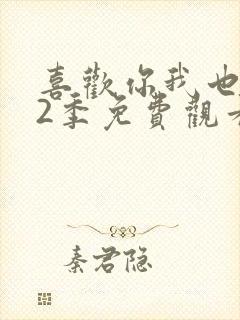 喜歡你我也
2季免費觀
秦君隐